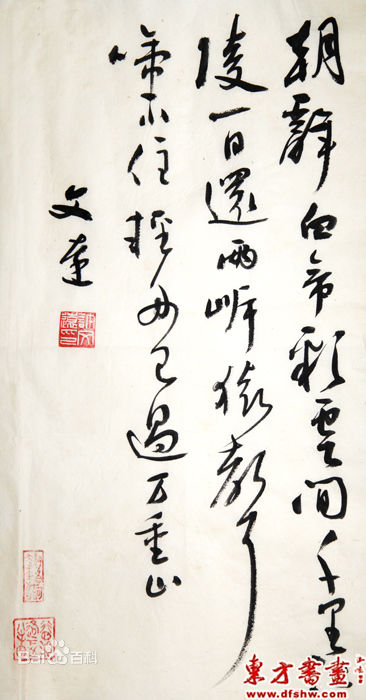 朝辭白帝彩雲間千里江
陵一日還兩岸猿聲
啼不住輕舟已過万重山
文達
Baidu百科
東方書畫
www.dfshw.com